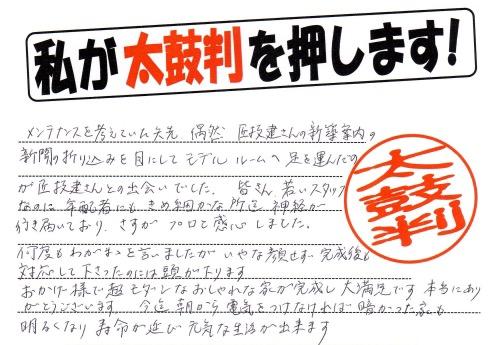 私が太鼓判を押します!
メンテナンスを考えていた矢先 偶然 匠技建さんの新築案内の
新聞の折り込みを目にして モデル ルームへ 足を運んだの
が匠技建さんとの出会いでした。 皆さん、若いスタッフ
なのに 年配者にも きめ細かな所迄 神経が
行き届いており、さすが プロと感心しました。
何度もわがまゝを言いましたが いやな顔せず 完成後も
対応して下さったのには頭が下ります
おかげ様で超モダンなおしゃれな家が完成し 大満足です 本当にあり
がとうございます 今迄 朝から 電気をつけなければ 暗かった家も
明るくなり 寿命が延び 元気な生活が出来ます
太鼓判